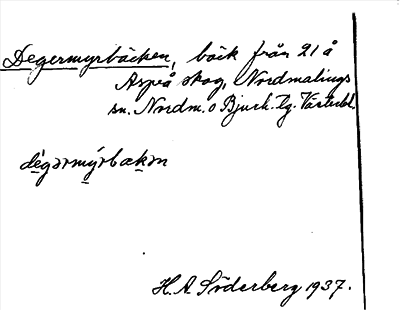 Degermyrbäcken, bäck från 21 å
Aspeå skog, Nordmalings
sn. Nordm. o Bjurh. tg. Västerbl.
dégərmýrbakən
H.A. Söderberg 1937.